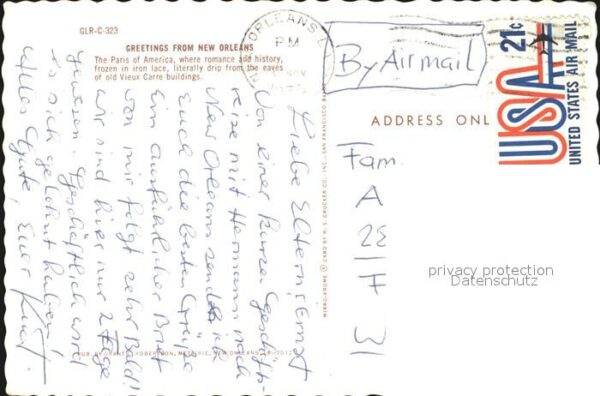 GLR-C-323
GREETINGS FROM NEW ORLEANS
The Paris of America, where romance and history,
frozen in iron lace, literally drip from the eaves
of old Vieux Carre buildings.
ORLEANS
PM
By Airmail
21c
USA
UNITED STATES AIR MAIL
ADDRESS ONL
Fam.
A
2E
F
31
Liebe Eltern, Ernest
Von einer kurzen Geschäfts-
reise mit Hermann nach
New Orleans sende ich
Euch die besten Grüße
Ein ausführlicher Brief
von mir folgt sehr bald!
Wir sind hier nur 2 Tage
gewesen. Geschäftlich wird
es sich gelohnt haben!
Alles Gute, Euer Kurt.
MIRRO-KROME ® CARD BY H. S. CROCKER CO., INC., SAN FRANCISCO
PUB. BY GRANT L. ROBERTSON, METAIRIE, NEW ORLEANS, LA.
privacy protection
Datenschutz